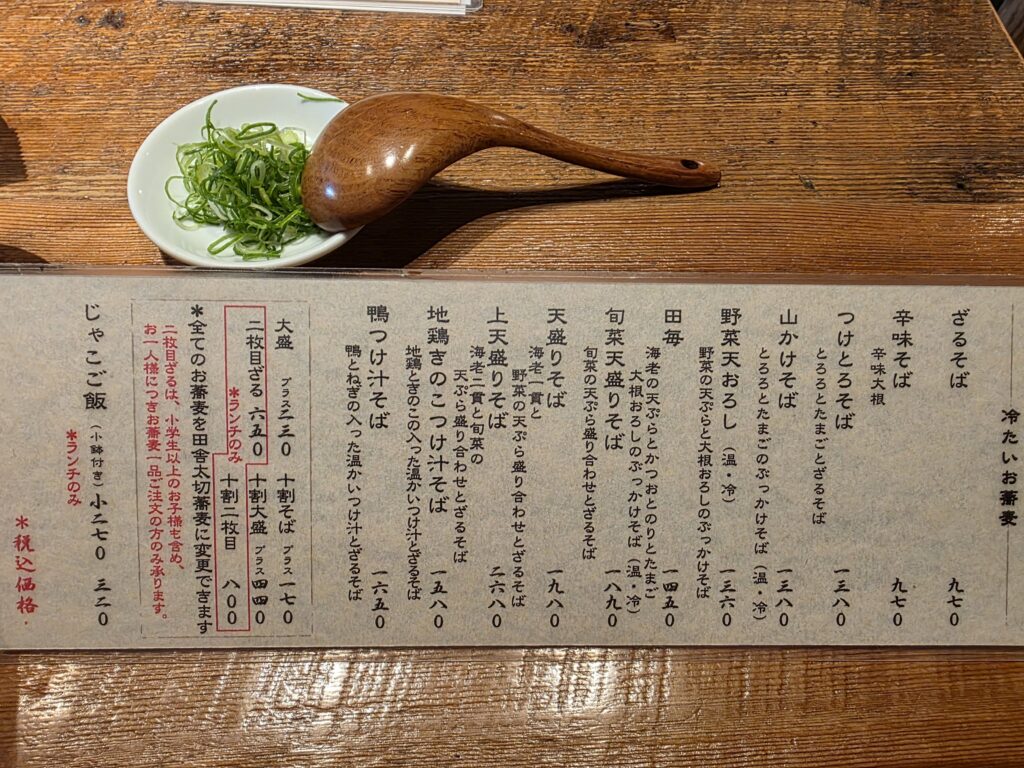 冷たいお蕎麦
ざるそば 九七〇
辛味そば 九七〇
辛味大根
つけとろそば 一三八〇
とろろとたまごとざるそば
山かけそば 一三八〇
とろろとたまごのぶっかけそば（温・冷）
野菜天おろし（温・冷） 一三六〇
野菜の天ぷらと大根おろしのぶっかけそば
田毎 一四五〇
海老の天ぷらとかつおとのりとたまご
大根おろしのぶっかけそば（温・冷）
旬菜天盛りそば 一八九〇
旬菜の天ぷら盛り合わせとざるそば
天盛りそば 一九八〇
海老一貫と
野菜の天ぷら盛り合わせとざるそば
上天盛りそば 二六八〇
海老二貫と旬菜の
天ぷら盛り合わせとざるそば
地鶏きのこつけ汁そば 一五八〇
地鶏ときのこの入った温かいつけ汁とざるそば
鴨つけ汁そば 一六五〇
鴨とねぎの入った温かいつけ汁とざるそば
大盛 プラス二三〇 十割そば プラス一七〇
二枚目ざる 六五〇 十割大盛 プラス四四〇
＊ランチのみ 十割二枚目 八〇〇
＊全てのお蕎麦を田舎太切蕎麦に変更できます
二枚目ざるは、小学生以上のお子様も含め、
お一人様につきお蕎麦一品ご注文の方のみ承ります。
じゃこご飯（小鉢付き）小二七〇 三二〇
＊ランチのみ
＊税込価格.